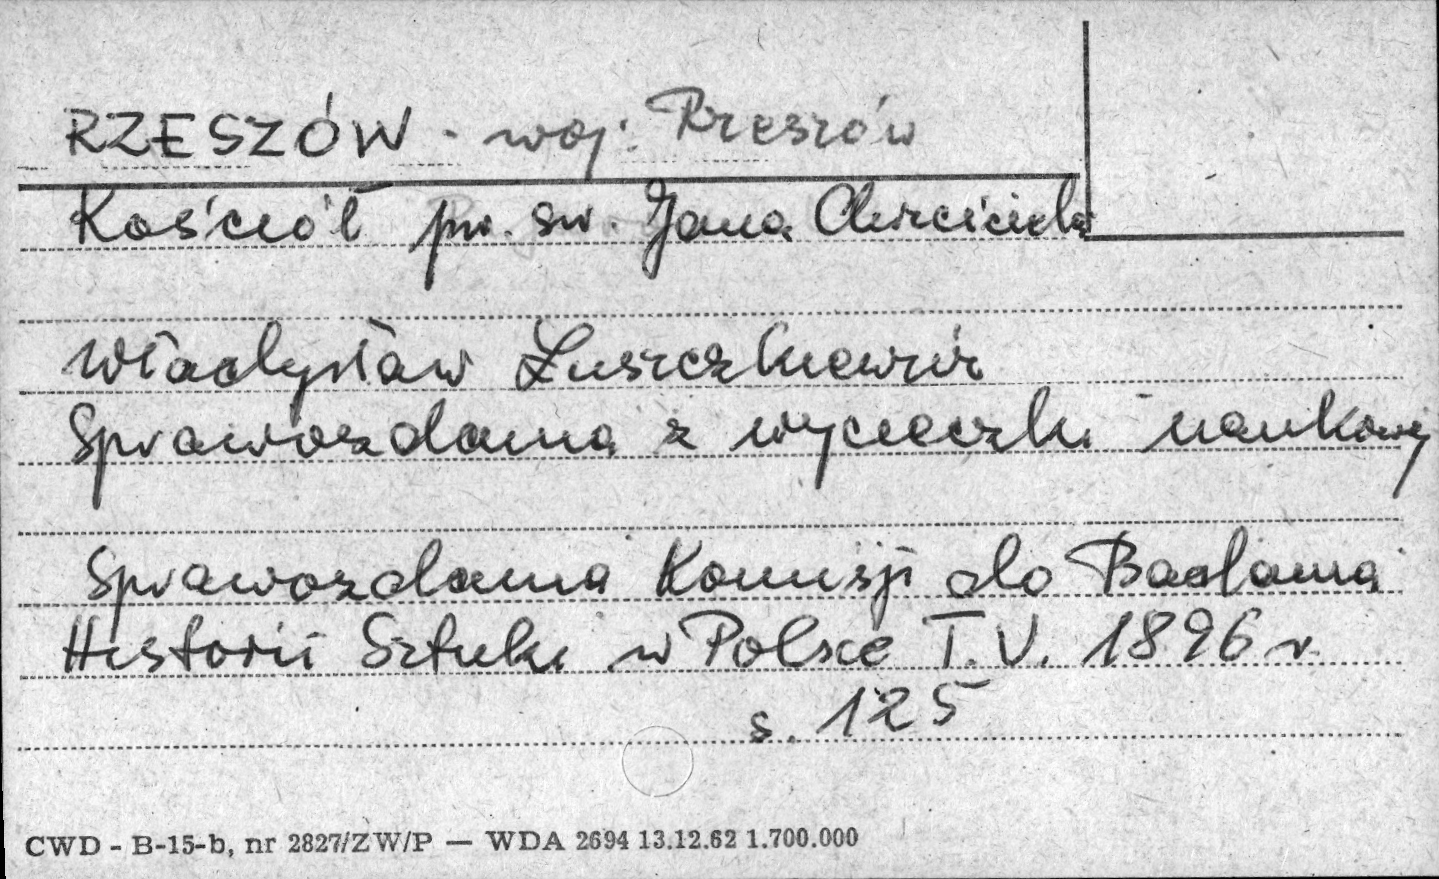 RZESZÓW - woj: Rzeszów
Kościół pw. św. Jana Chrzciciela
Władysław Łuszczkiewicz
Sprawozdania z wycieczki naukowej
Sprawozdania Komisji do Badania
Historii Sztuki w Polsce T. V. 1896 r.
s. 125
CWD - B-15-b, nr 2827/ZW/P — WDA 2694 13.12.62 1.700.000